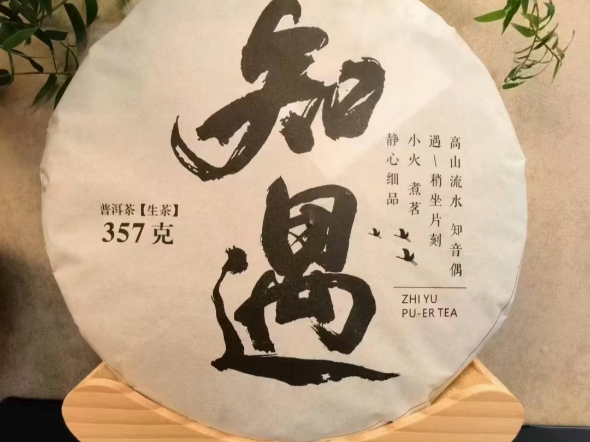 知遇
高山流水 知音偶
遇\稍坐片刻
小火 煮茗
静心细品
普洱茶【生茶】
357 克
ZHI YU
PU-ER TEA